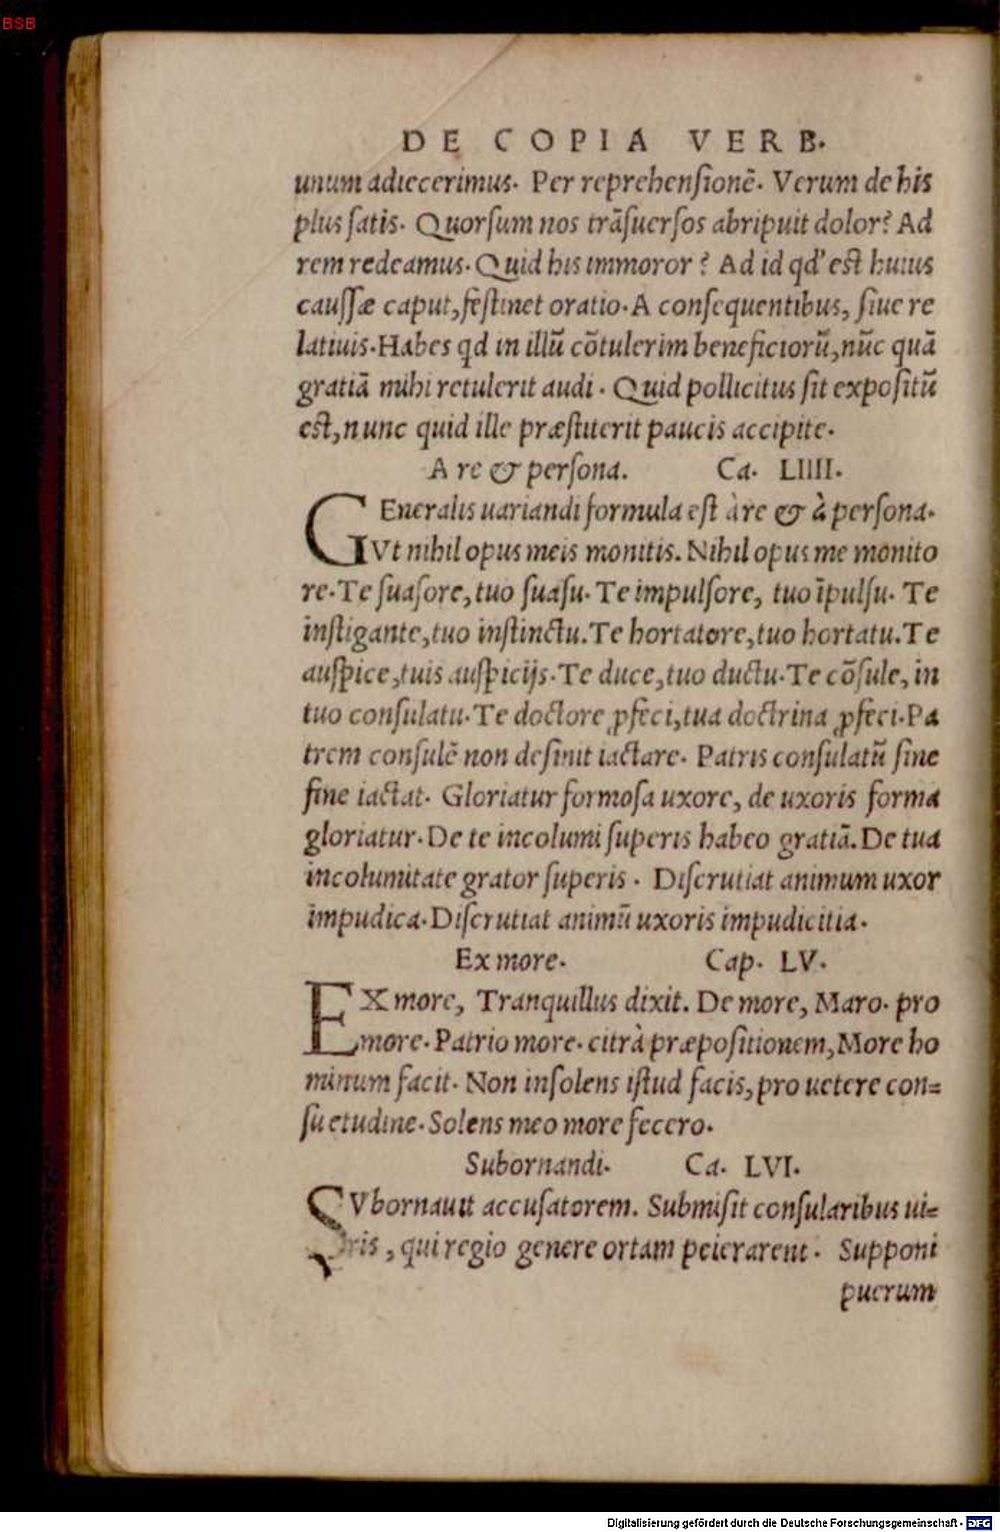 BSB
DE COPIA VERB.
unum adiecerimus. Per reprehensionē. Verum de his
plus satis. Quorsum nos trāsuersos abripuit dolor? Ad
rem redeamus. Quid his immoror? Ad id qd' est huius
caussæ caput, festinet oratio. A consequentibus, siue re
latiuis. Habes qd in illū cōtulerim beneficiorū, nūc quā
gratiā mihi retulerit audi. Quid pollicitus sit expositū
est, nunc quid ille præstiterit paucis accipite.
A re & persona. Ca. LIIII.
GEneralis uariandi formula est à re & à persona.
Vt nihil opus meis monitis. Nihil opus me monito
re. Te suasore, tuo suasu. Te impulsore, tuo īpulsu. Te
instigante, tuo instinctu. Te hortatore, tuo hortatu. Te
auspice, tuis auspicijs. Te duce, tuo ductu. Te cōsule, in
tuo consulatu. Te doctore ꝓfeci, tua doctrina ꝓfeci. Pa
trem consulē non desinit iactare. Patris consulatū sine
fine iactat. Gloriatur formosa uxore, de uxoris forma
gloriatur. De te incolumi superis habeo gratiā. De tua
incolumitate grator superis. Discrutiat animum uxor
impudica. Discrutiat animū uxoris impudicitia.
Ex more. Cap. LV.
EX more, Tranquillus dixit. De more, Maro. pro
more. Patrio more. citrà præpositionem, More ho
minum facit. Non insolens istud facis, pro uetere con=
suetudine. Solens meo more fecero.
Subornandi. Ca. LVI.
SVbornauit accusatorem. Submisit consularibus ui=
ris, qui regio genere ortam peierarent. Supponi
puerum
Digitalisierung gefördert durch die Deutsche Forschungsgemeinschaft - DFG